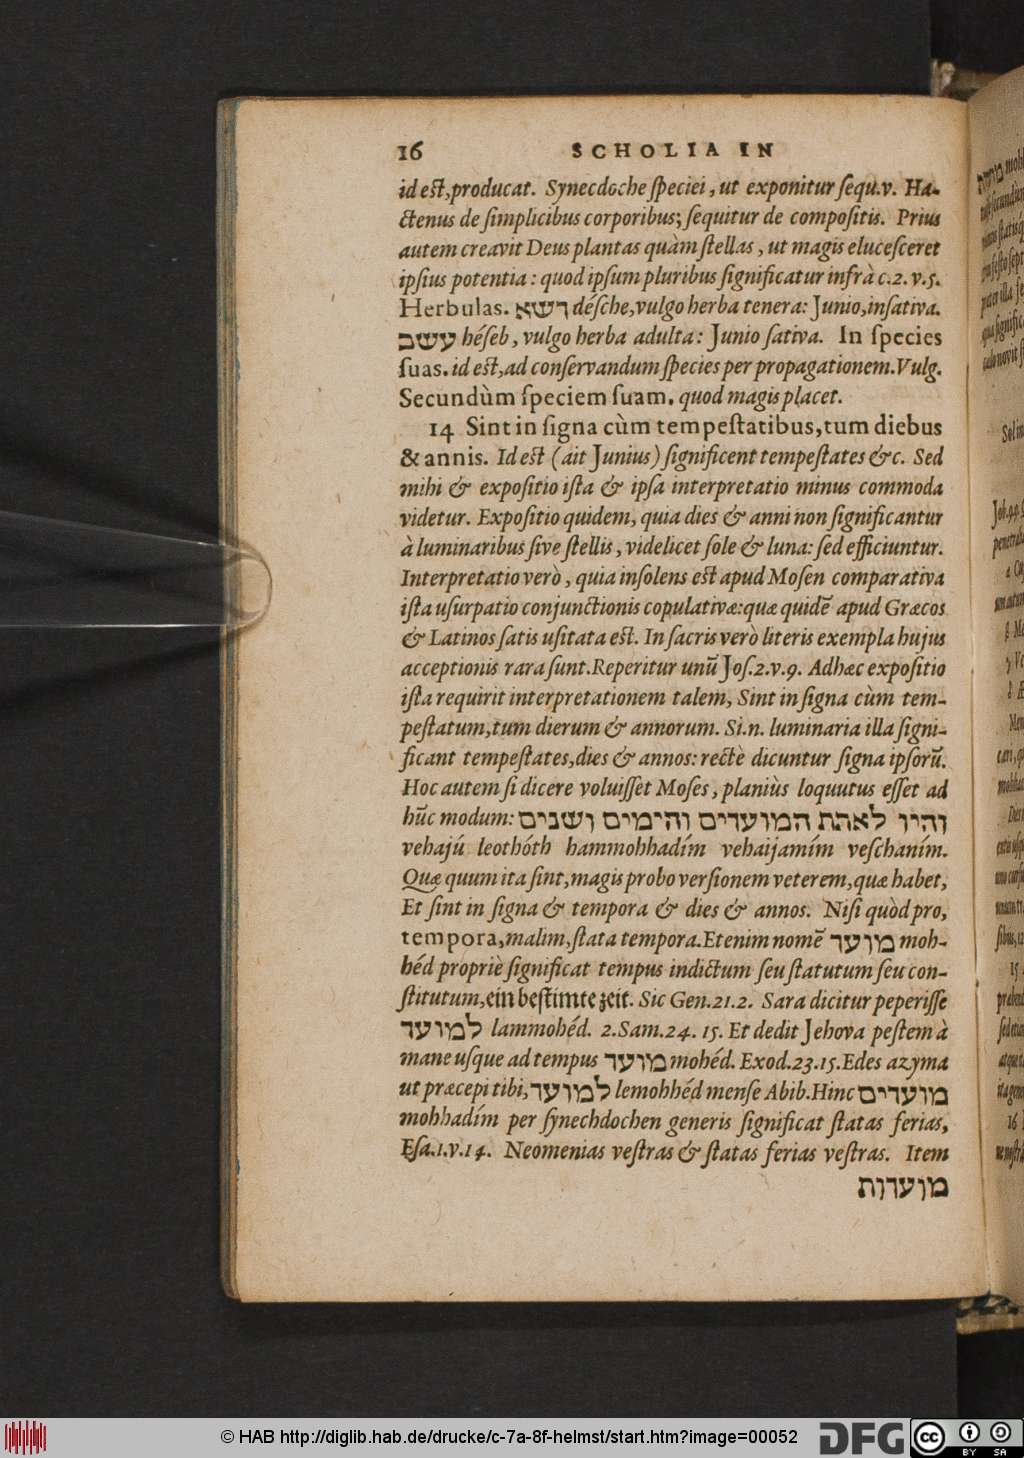 16 SCHOLIA IN
id est, producat. Synecdoche speciei, ut exponitur sequ. v. Ha-
ctenus de simplicibus corporibus; sequitur de compositis. Prius
autem creavit Deus plantas quàm stellas, ut magis elucesceret
ipsius potentia: quod ipsum pluribus significatur infrà c. 2. v. 5.
Herbulas. דשא désche, vulgo herba tenera: Junio, insativa.
עשב héseb, vulgo herba adulta: Junio sativa. In species
suas. id est, ad conservandum species per propagationem. Vulg.
Secundùm speciem suam. quod magis placet.
14 Sint in signa cùm tempestatibus, tum diebus
& annis. Id est (ait Junius) significent tempestates &c. Sed
mihi & expositio ista & ipsa interpretatio minus commoda
videtur. Expositio quidem, quia dies & anni non significantur
à luminaribus sive stellis, videlicet sole & luna: sed efficiuntur.
Interpretatio verò, quia insolens est apud Mosen comparativa
ista usurpatio conjunctionis copulativæ: quæ quidē apud Græcos
& Latinos satis usitata est. In sacris verò literis exempla hujus
acceptionis rara sunt. Reperitur unū Jos. 2. v. 9. Ad hæc expositio
ista requirit interpretationem talem, Sint in signa cùm tem-
pestatum, tum dierum & annorum. Si. n. luminaria illa signi-
ficant tempestates, dies & annos: rectè dicuntur signa ipsorū.
Hoc autem si dicere voluisset Moses, planiùs loquutus esset ad
hūc modum: והיו לאתת המועדים והימים ושנים
vehajú leothóth hammohhadím vehaijamím veschaním.
Quæ quum ita sint, magis probo versionem veterem, quæ habet,
Et sint in signa & tempora & dies & annos. Nisi quòd pro,
tempora, malim, stata tempora. Etenim nomē מועד moh-
héd propriè significat tempus indictum seu statutum seu con-
stitutum, ein bestimte zeit. Sic Gen. 21. 2. Sara dicitur peperisse
למועד lammohéd. 2. Sam. 24. 15. Et dedit Jehova pestem à
mane usque ad tempus מועד mohéd. Exod. 23. 15. Edes azyma
ut præcepi tibi, למועד lemohhéd mense Abib. Hinc מועדים
mohhadím per synechdochen generis significat statas ferias,
Esa. 1. v. 14. Neomenias vestras & statas ferias vestras. Item
מועדות
© HAB http://diglib.hab.de/drucke/c-7a-8f-helmst/start.htm?image=00052
DFG
cc BY SA